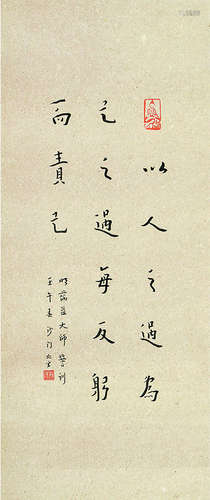 以人之過為
己之過每反躬
而責己
明蕅益大師警訓
壬午春沙門弘一